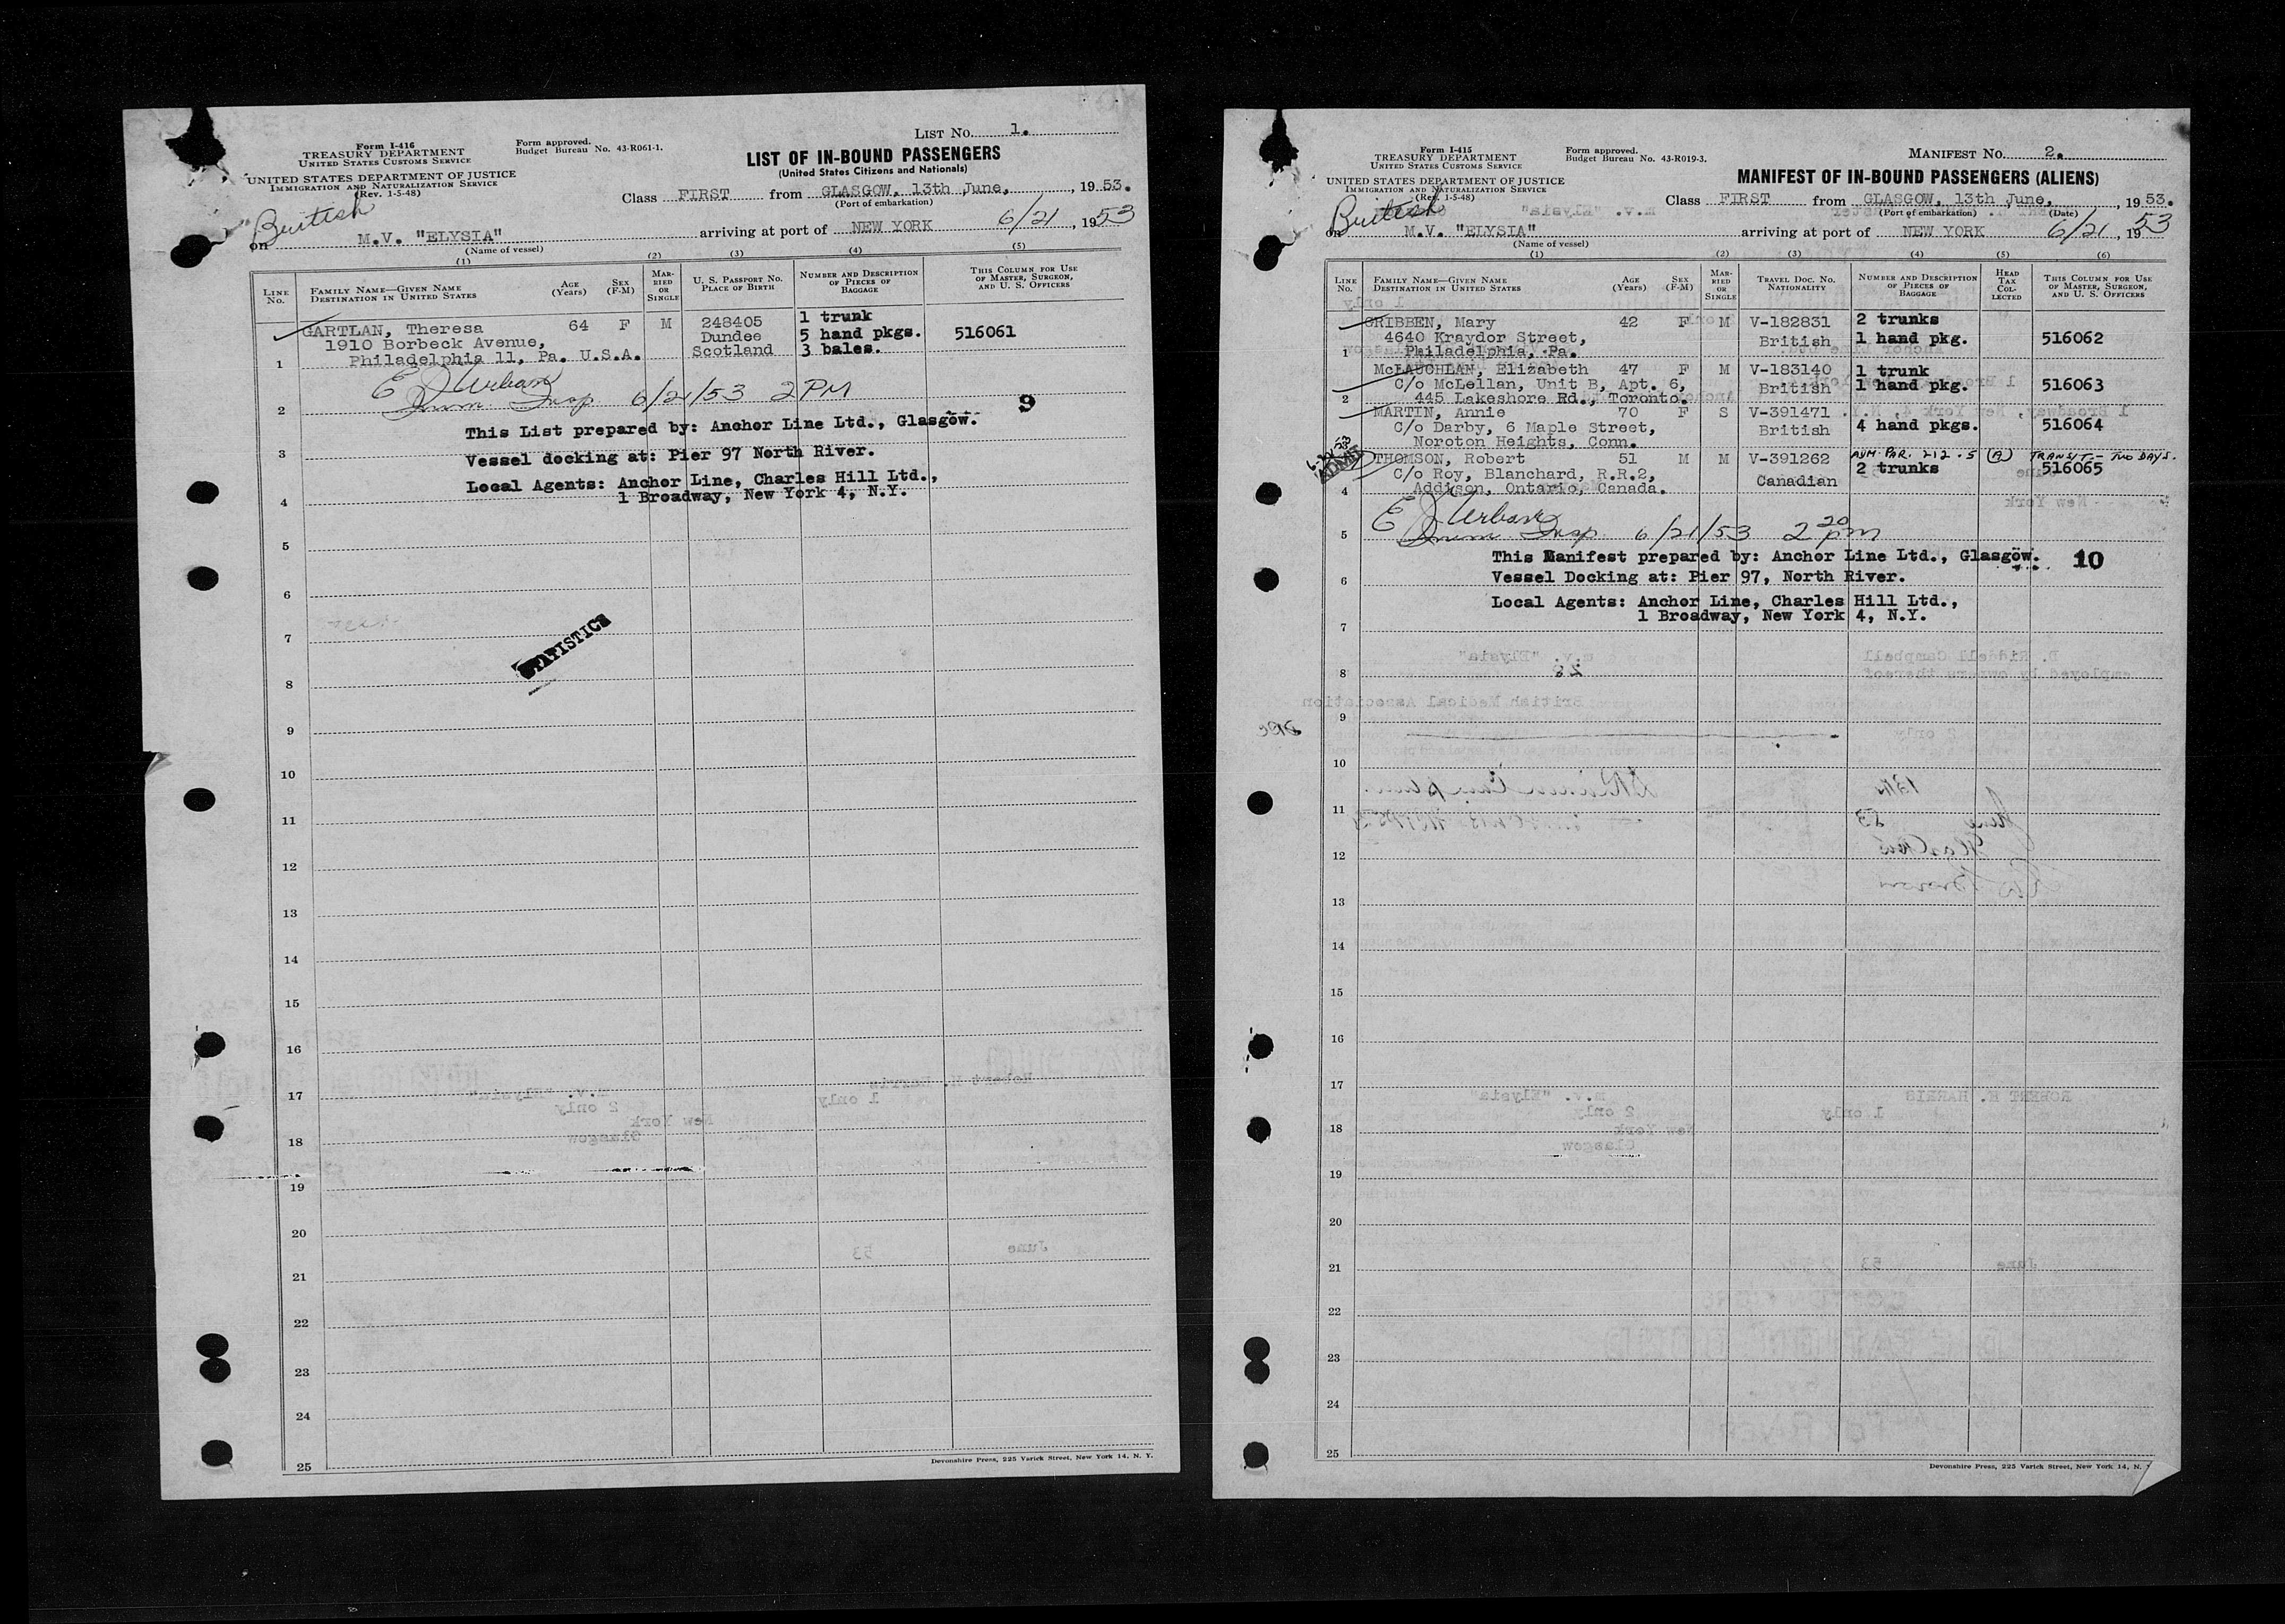 LIST No. 1.
Form I-416
TREASURY DEPARTMENT
UNITED STATES CUSTOMS SERVICE
UNITED STATES DEPARTMENT OF JUSTICE
IMMIGRATION AND NATURALIZATION SERVICE
(Rev. 1-5-48)
Form approved.
Budget Bureau No. 43-R061-1.
LIST OF IN-BOUND PASSENGERS
(United States Citizens and Nationals)
Class FIRST from GLASGOW, 13th June, , 1953.
(Port of embarkation)
British
on M.V. "ELYSIA" arriving at port of NEW YORK 6/21 , 1953
(Name of vessel)
(1) (2) (3) (4) (5)
LINE No. FAMILY NAME—GIVEN NAME DESTINATION IN UNITED STATES AGE (Years) SEX (F-M) MARRIED OR SINGLE U. S. PASSPORT No. PLACE OF BIRTH NUMBER AND DESCRIPTION OF PIECES OF BAGGAGE THIS COLUMN FOR USE OF MASTER, SURGEON, AND U. S. OFFICERS
GARTLAN, Theresa 64 F M 248405 1 trunk
1910 Borbeck Avenue, Dundee 5 hand pkgs. 516061
1 Philadelphia 11, Pa. U.S.A. Scotland 3 bales.
E J Urban
2 Imm Insp 6/21/53 2 PM 9
This List prepared by: Anchor Line Ltd., Glasgow.
3 Vessel docking at: Pier 97 North River.
Local Agents: Anchor Line, Charles Hill Ltd.,
4 1 Broadway, New York 4, N.Y.
5
6
7
STATISTICS
8
9
10
11
12
13
14
15
16
17
18
19
20
21
22
23
24
25
Devonshire Press, 225 Varick Street, New York 14, N. Y.
MANIFEST No. 2.
Form I-415
TREASURY DEPARTMENT
UNITED STATES CUSTOMS SERVICE
UNITED STATES DEPARTMENT OF JUSTICE
IMMIGRATION AND NATURALIZATION SERVICE
(Rev. 1-5-48)
Form approved.
Budget Bureau No. 43-R019-3.
MANIFEST OF IN-BOUND PASSENGERS (ALIENS)
Class FIRST from GLASGOW, 13th June, , 1953.
(Port of embarkation) (Date)
British
on M.V. "ELYSIA" arriving at port of NEW YORK 6/21 , 1953
(Name of vessel)
(1) (2) (3) (4) (5) (6)
LINE No. FAMILY NAME—GIVEN NAME DESTINATION IN UNITED STATES AGE (Years) SEX (F-M) MARRIED OR SINGLE TRAVEL DOC. No. NATIONALITY NUMBER AND DESCRIPTION OF PIECES OF BAGGAGE HEAD TAX COLLECTED THIS COLUMN FOR USE OF MASTER, SURGEON, AND U. S. OFFICERS
GRIBBEN, Mary 42 F M V-182831 2 trunks
4640 Kraydor Street, British 1 hand pkg. 516062
1 Philadelphia, Pa.
McLAUCHLAN, Elizabeth 47 F M V-183140 1 trunk
C/o McLellan, Unit B, Apt. 6, British 1 hand pkg. 516063
2 445 Lakeshore Rd., Toronto.
MARTIN, Annie 70 F S V-391471
C/o Darby, 6 Maple Street, British 4 hand pkgs. 516064
Noroton Heights, Conn.
ADM. PAR. 212.5 (A) TRANSIT - TWO DAYS.
THOMSON, Robert 51 M M V-391262 2 trunks 516065
C/o Roy, Blanchard, R.R.2, Canadian
4 Addison, Ontario, Canada.
E J Urban
5 Imm Insp 6/21/53 2 20 pm
This Manifest prepared by: Anchor Line Ltd., Glasgow. 10
6 Vessel Docking at: Pier 97, North River.
Local Agents: Anchor Line, Charles Hill Ltd.,
7 1 Broadway, New York 4, N.Y.
8
9
10
11
12
13
14
15
16
17
18
19
20
21
22
23
24
25
Devonshire Press, 225 Varick Street, New York 14, N.